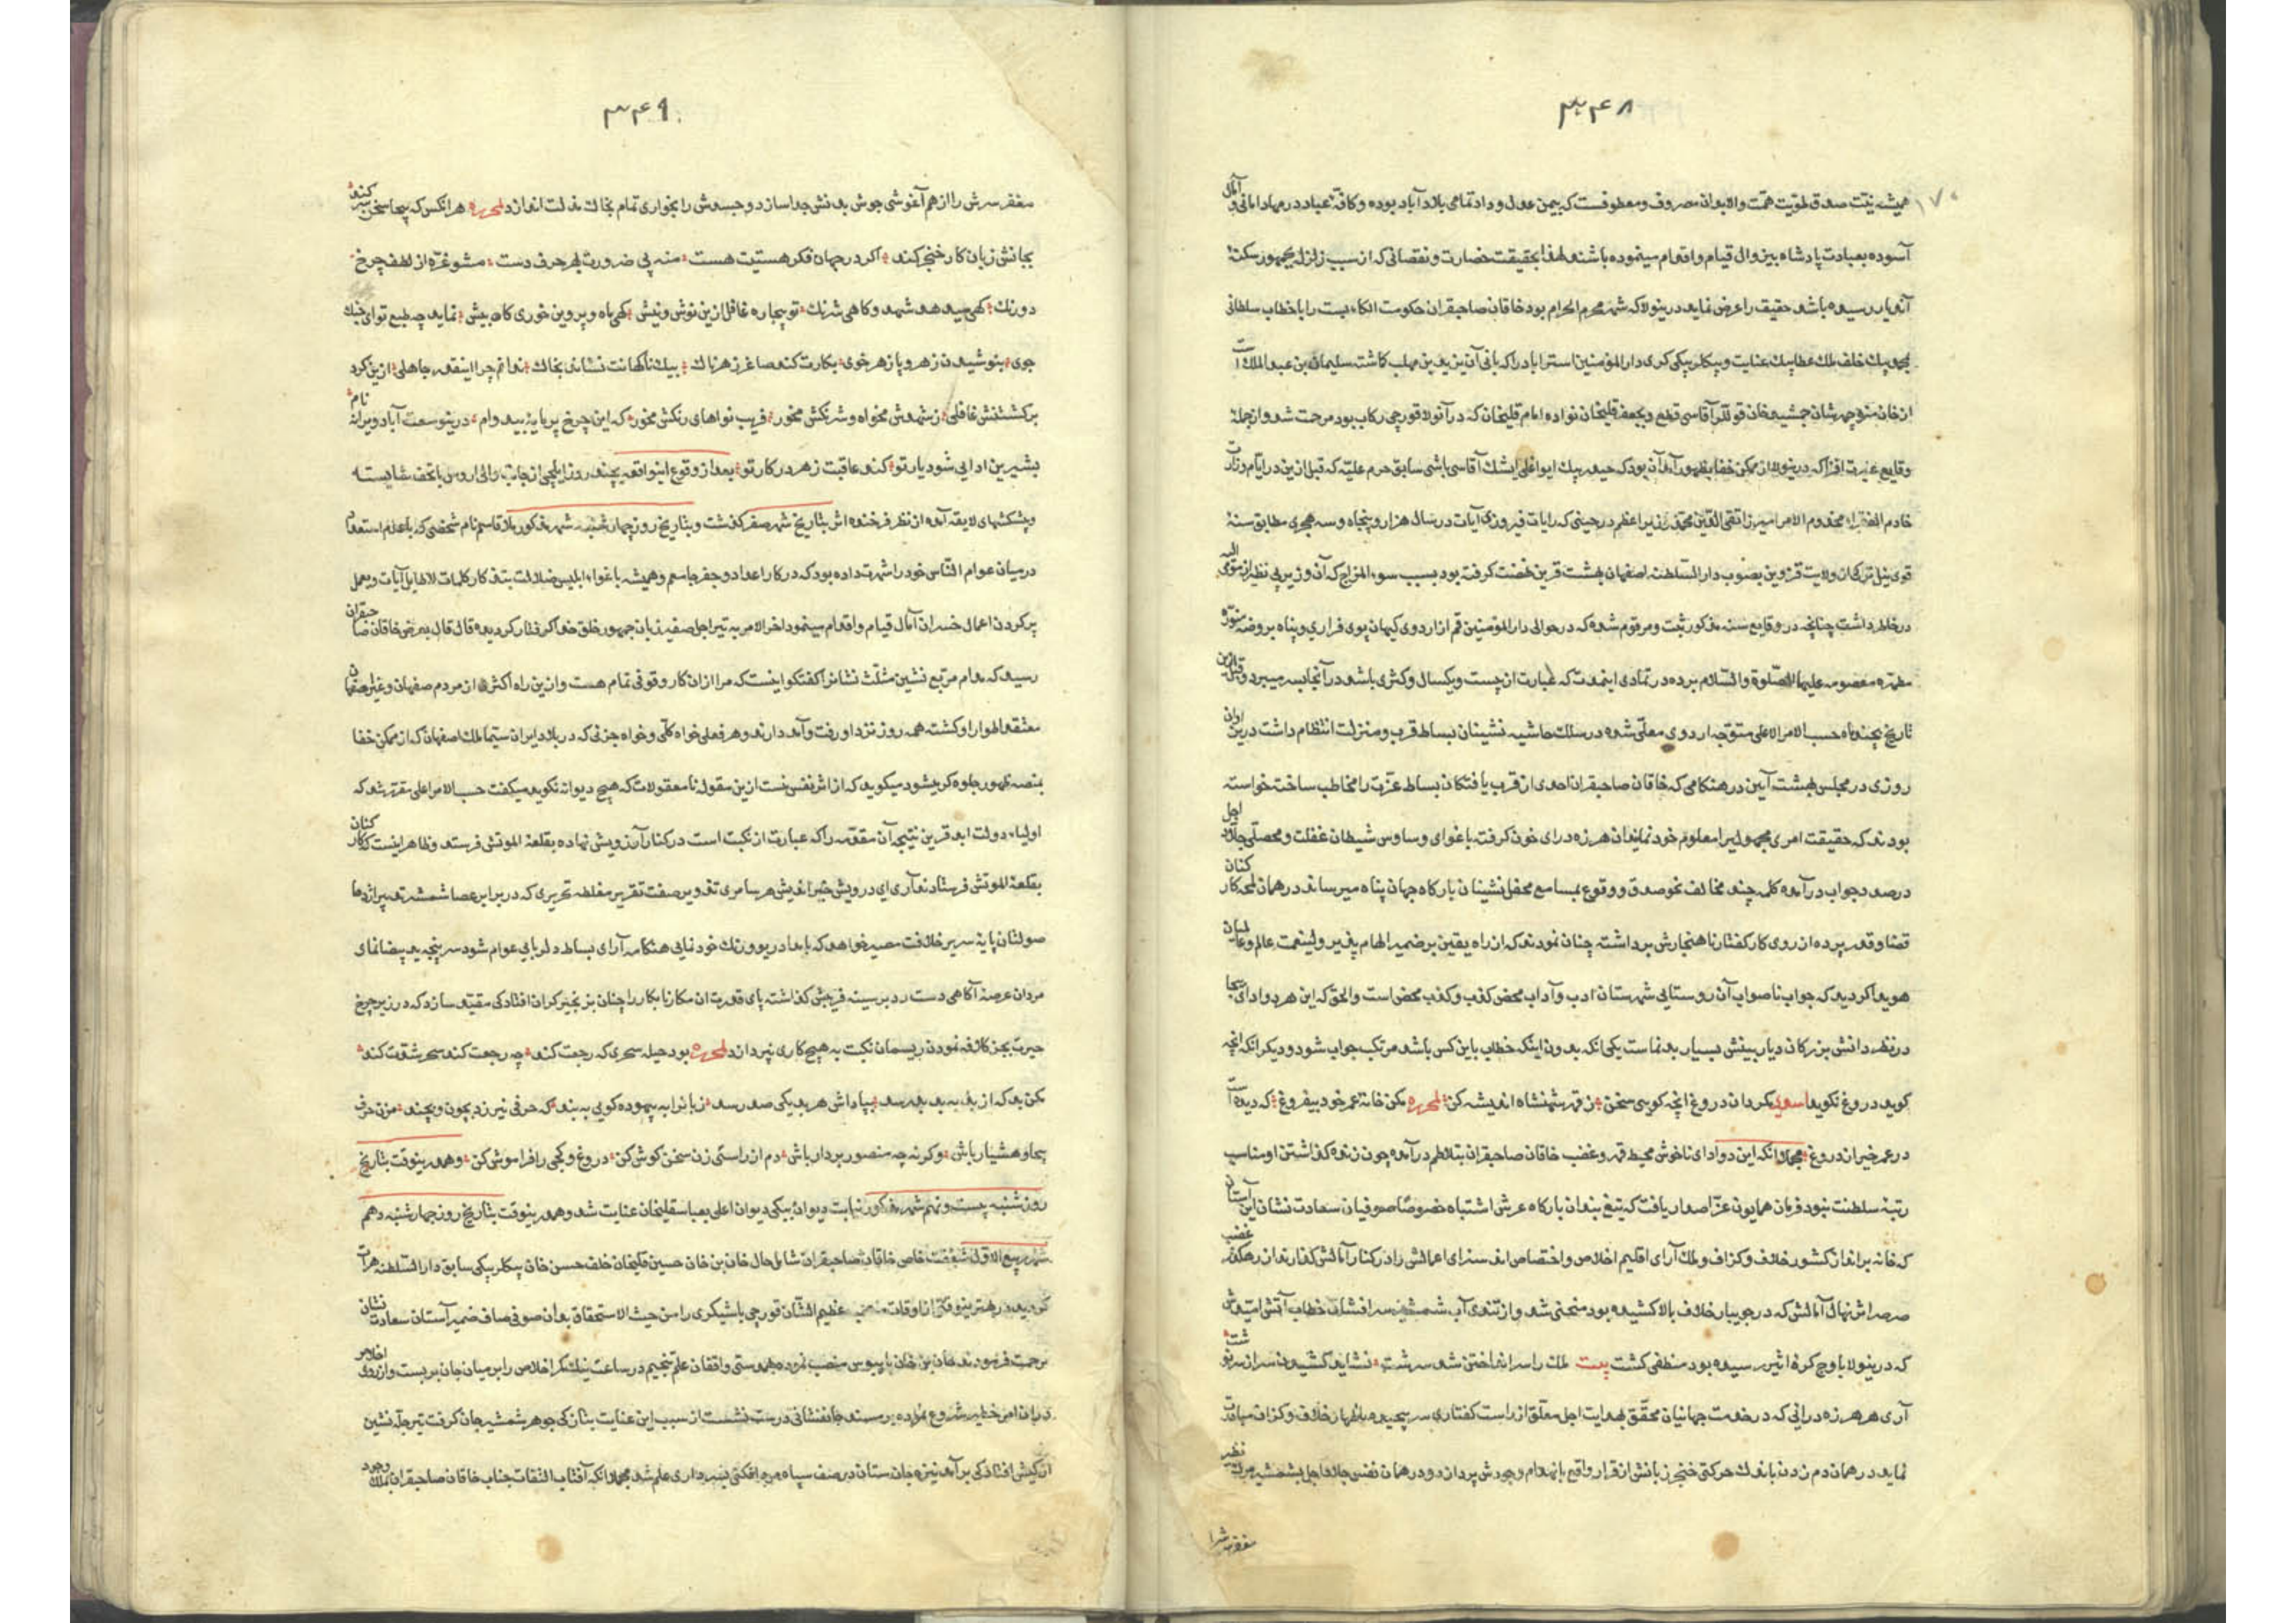 ۳۴۸
۱۷۰
همیشه نیت صدق طویت همت والا بدان مصروف و معطوفست که بیمن عدل و داد تمامی بلاد آباد بوده و کافۀ عباد در مهاد امانی و آمال
آسوده بعبادت پادشاه بیزوال قیام و اقدام مینموده باشند لهذا بحقیقت خسارت و نقصانی که از سبب زلزله بجمهور سکنۀ
آندیار رسیده باشد حقیقت را عرض نماید درینولا که شهر محرم الحرام بود خاقان صاحبقران حکومت الکاء بست را با خطاب سلطانی
بیک خلف ملک عطا بیک عنایت و بیکلربیکی کری دار المؤمنین استراباد را که بانی آن یزید بن مهلب کاشته سلیمان بن عبد الملک است
از خان منوچهرشان جمشید خان قوللر آقاسی قطع و بجعفر قلیخان نواده امام قلیخان که در آنولا قورچی رکاب بود مرحمت شد و از جملۀ
وقایع عبرت افزا که درینولا از ممکن خفا بظهور آمد آن بود که حیدر بیک ایواغلی ایشک آقاسی باشی سابق حرم علیه که قبل ازین در ایام وزارت
خادم الفقراء مخدوم الامرا میرزا تقی الدین محمد وزیر اعظم در حینی که رایات فیروزی آیات در سال هزار و پنجاه و سه هجری مطابق سنۀ
قوی ئیل ترکی از ولایت قزوین بصوب دار السلطنه اصفهان بهشت قرین نهضت کرفته بود بسبب سوء المزاج که آن وزیر بی نظیر از مومی الیه
در خاطر داشت چنانچه در وقایع سنه مذکور ثبت و مرقوم شده که در حوالی دار المؤمنین قم از اردوی کیهان پوی فراری و پناه بروضه منوره
مطهره معصومه علیها الصلوة و السلام برده در تمادی اینمدت که عبارت از بیست و یکسال و کثری باشد در آنجا بسر میبرد و قبل ازین
تاریخ بچند ماه حسب الامر الاعلی متوجه اردوی معلی شده در سلک حاشیه نشینان بساط قرب و منزلت انتظام داشت درین اوان
روزی در مجلس بهشت آیین در هنکامی که خاقان صاحبقران احدی از قرب یافتکان بساط عزت را مخاطب ساخته خواسته
بودند که حقیقت امری مجهولیرا معلوم خود نمایند آن هرزه درای خون کرفته باغوای وساوس شیطان غفلت و محصلی جلاد اجل
درصدد جواب درآمده کلمه چند مخالف نحو صدق و وقوع بمسامع محفل نشینان بارکاه جهان پناه میرساند در همان لمحه کارکنان
قضا و قدر پرده از روی کار کفتار ناهنجارش برداشته چنان نمودند که از راه یقین بر ضمیر الهام پذیر ولینعمت عالم و عالمیان
هویدا کردید که جواب ناصواب آن روستایی شهرستان ادب و آداب محض کذب و کذب محض است والحق که این هر دو ادای بیجا
در نظر دانش بزرکان دیار بینش بسیار بدنماست یکی آنکه بدون اینکه خطاب باین کس باشد مرتکب جواب شود و دیکر آنکه آنچه
کوید دروغ نکوید اسعدی مکردان دروغ آنچه کویی سخن ز قهر شهنشاه اندیشه کن لمحرره مکن خانۀ عمر خود بیفروغ که دیده است
در عمر خیر از دروغ مجملا آنکه این دو ادای ناخوش محیط قهر و غضب خاقان صاحبقران بتلاطم درآمده چون زنده کذاشتن او مناسب
رتبه سلطنت نبود فرمان همایون عز اصدار یافت که تیغ بندان بارکاه عرش اشتباه خصوصا صوفیان سعادت نشان این آستان
که خانه برانداز کشور خلاف و کزاف و ملک آرای اقلیم اخلاص و اختصاص اند سزای اعمالش را در کنار آمالش کذارند از رهکذر غضب
صرصر اثر نهال آمالش که در جویبار خلاف بالا کشیده بود منحنی شد و از تندی آب شمشیر سرافشان خطاب آتش امتدادش
که درینولا باوج کرۀ اثیر رسیده بود منطفی کشت بیت ملک را سر انداختن شد سرشت نشاید کشیدن سر از سرنوشت
آری هر هرزه درائی که در خدمت جهانیان محقق بهدایت اجل معلق از راست کفتاری سر پیچیده باظهار خلاف و کزاف مبادرت
نماید در همان دم زدن باندک حرکتی خنجر زبانش از قرار واقع بانهدام وجودش پردازد و در همان نفس جلاد اجل بشمشیر مرک نظیر
مغفر سرش را
۳۴۹
مغفر سرش را از هم آغوشی جوش بدنش جدا سازد و جسدش را بخواری تمام بخاک مذلت اندازد لمحرره هر آنکس که بیجا سخن سر کند
بجانش زبان کار خنجر کند اکر در جهان فکر هستیت هست منه پی ضرورت بهر حرف دست مشو غره از لطف چرخ
دورنک کهی میدهد شهد و کاهی شرنک تو بیچاره غافل ازین نوش و نیش کهی ماه و پروین خوری کاه بیش نماید چه طبع تو ای جنک
جوی بنوشیدن زهر و پازهر خوی بکارت کند ساغر زهرناک بیک ناکهانت نشاند بخاک ندانم چرا اینقدر جاهلی ازین کرد
برکشتنش غافلی ز شهدش مخواه و شرنکش مخور فریب نواهای رنکش مخور که این چرخ پر مایۀ بید وام درینوسعت آباد ویرانه نام
بشیرین ادایی شود یار تو کند عاقبت زهر در کار تو بعد از وقوع اینواقعه بچند روز ایلچی از جانب والی اروس با تحف شایسته
و پیشکشهای لایقه آمده از نظر فرخنده اثر بتاریخ شهر صفر کذشت و بتاریخ روز چهارشنبه شهر مذکور ملا قاسم نام شخصی که باعلام استعداد
در میان عوام الناس خود را شهرت داده بود که در کار اعداد و جفر جاسم و همیشه باغواء ابلیس ضلالت بتذکار کلمات لاطایل آیات و بعمل
پر کردن اعمال خسران آمال قیام و اقدام مینمود آخر الامر به تیر اجل صفیر زبان جمهور خلق خدا کرفتار کردیده قال قال بعرض خاقان صاحبقران
رسید که مدام مربع نشین مثلث نشانرا کفتکو اینست که مرا از آن کار وقوفی تمام هست و ازین راه اکثری از مردم صفهان و غیر صفهان
معتقد اطوار او کشته همه روز نزد او رفت و آمد دارند و هر فعلی خواه کلی و خواه جزئی که در بلاد ایران سیما ملک اصفهان که از ممکن خفا
بمنصه ظهور جلوه کر میشود میکوید که از اثر نفس منست ازین مقوله نامعقولات که هیچ دیوانه نکوید میکفت حسب الامر اعلی مقرر شد که
اولیاء دولت ابد قرین نتیجه آن مقدمه را که عبارت از نکبت است در کنار آرزویش نهاده بقلعة الموتش فرستند و ظاهر اینست که کارکنان
بقلعة الموتش فرستادند آری ای درویش خیر اندیش هر سامری تذویر صفت تقریر مغلطه تحریری که در برابر عصا شمشیر تدبیر اژدها
صولتان پایۀ سریر خلافت مصیر خواهد که بامداد ریو و رنک خودنمایی هنکامه آرای بساط دلربایی عوام شود سرپنجه ید بیضا نمای
مردان عرصۀ آکاهی دست رد بر سینه فریبش کذاشته پای قدرت آن مکار نابکار را چنان بزنجیر کران افتادکی مقید سازد که در زیر چرخ
حیرت بجز کلافه نمودن ریسمان نکبت به هیچ کاری نپردازد لمحرره بود حیله سحری که رجعت کند چه رجعت کند سحر شدت کند
مکن بد که از بد به بد بد رسد بپاداش هر بد یکی صد رسد زبانرا به بیهوده کویی به بند که حرفی نیرزد بچون و بچند مزن حرف
بیجا و هشیار باش وکرنه چه منصور بردار باش دم از راستی زن سخن کوش کن دروغ و کجی را فراموش کن و همدرینوقت بتاریخ
روز شنبه بیست و نهم شهر مذکور نیابت دیوان بیکی دیوان اعلی بعباسقلیخان عنایت شد و همدرینوقت بتاریخ روز چهارشنبه دهم
شهر ربیع الاول شفقت خاص خاقان صاحبقران شامل حال خان بن خان حسین قلیخان خلف حسن خان بیکلربیکی سابق دار السلطنه هرات
کردیده در بهترین وقتی از اوقات منصب عظیم الشان قورچی باشیکری را من حیث الاستحقاق بدان صوفی صاف ضمیر آستان سعادت نشان
مرحمت فرمودند خان بن خان پابوس منصب نموده بهمدستی واقفان علم تنجیم در ساعت نیک کمر اخلاص را بر میان جان بربست و از روی اخلاص
در ان امر خطیر شروع نموده بر مسند جانفشانی درست نشست از سبب این عنایت بتازکی جوهر شمشیر جان کرفت تیر چله نشین
از کیش افتادکی برآمد نیزه جان ستان در صف سپاه مرد افکنی بسرداری علم شد مجملا آنکه آفتاب التفات جناب خاقان صاحبقران بملک وجود